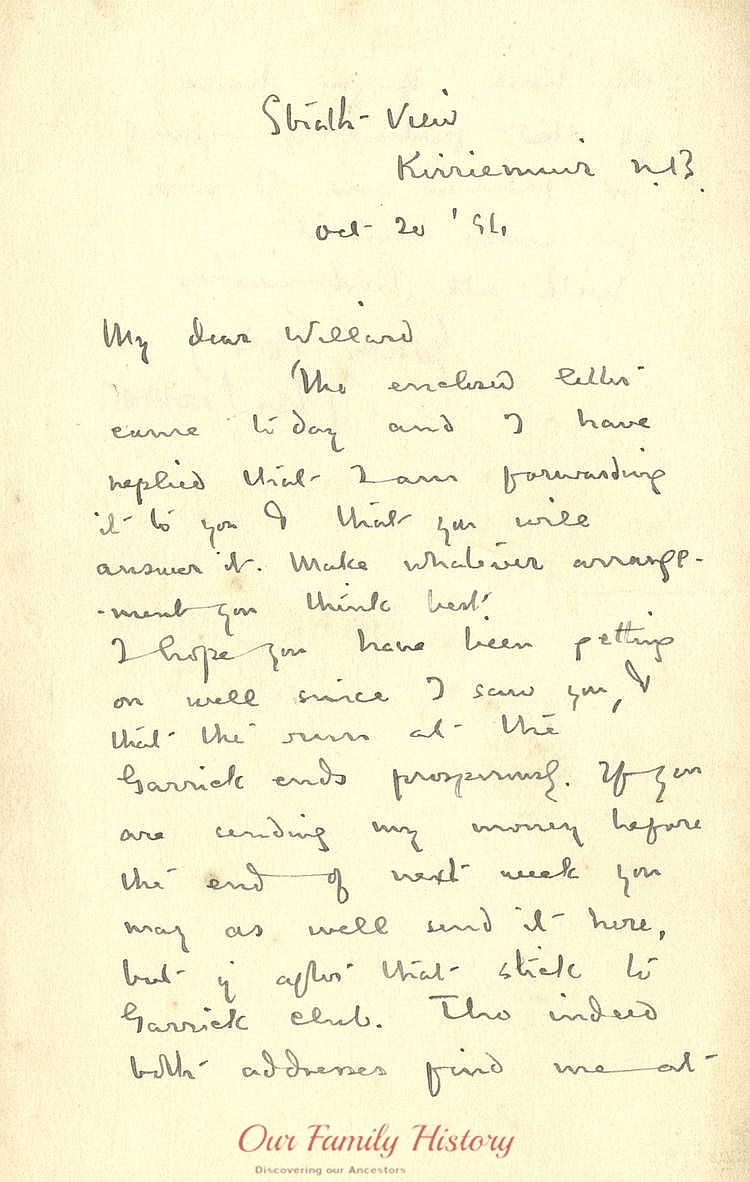 Strath-View
Kirriemuir N.B.
Oct 20 '94
My dear Willard
The enclosed letter
came today and I have
replied that I am forwarding
it to you & that you will
answer it. Make whatever arrange-
-ment you think best.
I hope you have been getting
on well since I saw you, &
that the run at the
Garrick ends prosperously. If you
are sending my money before
the end of next week you
may as well send it here,
but if after that stick to
Garrick club. Tho indeed
both addresses find me at
Our Family History
Discovering our Ancestors